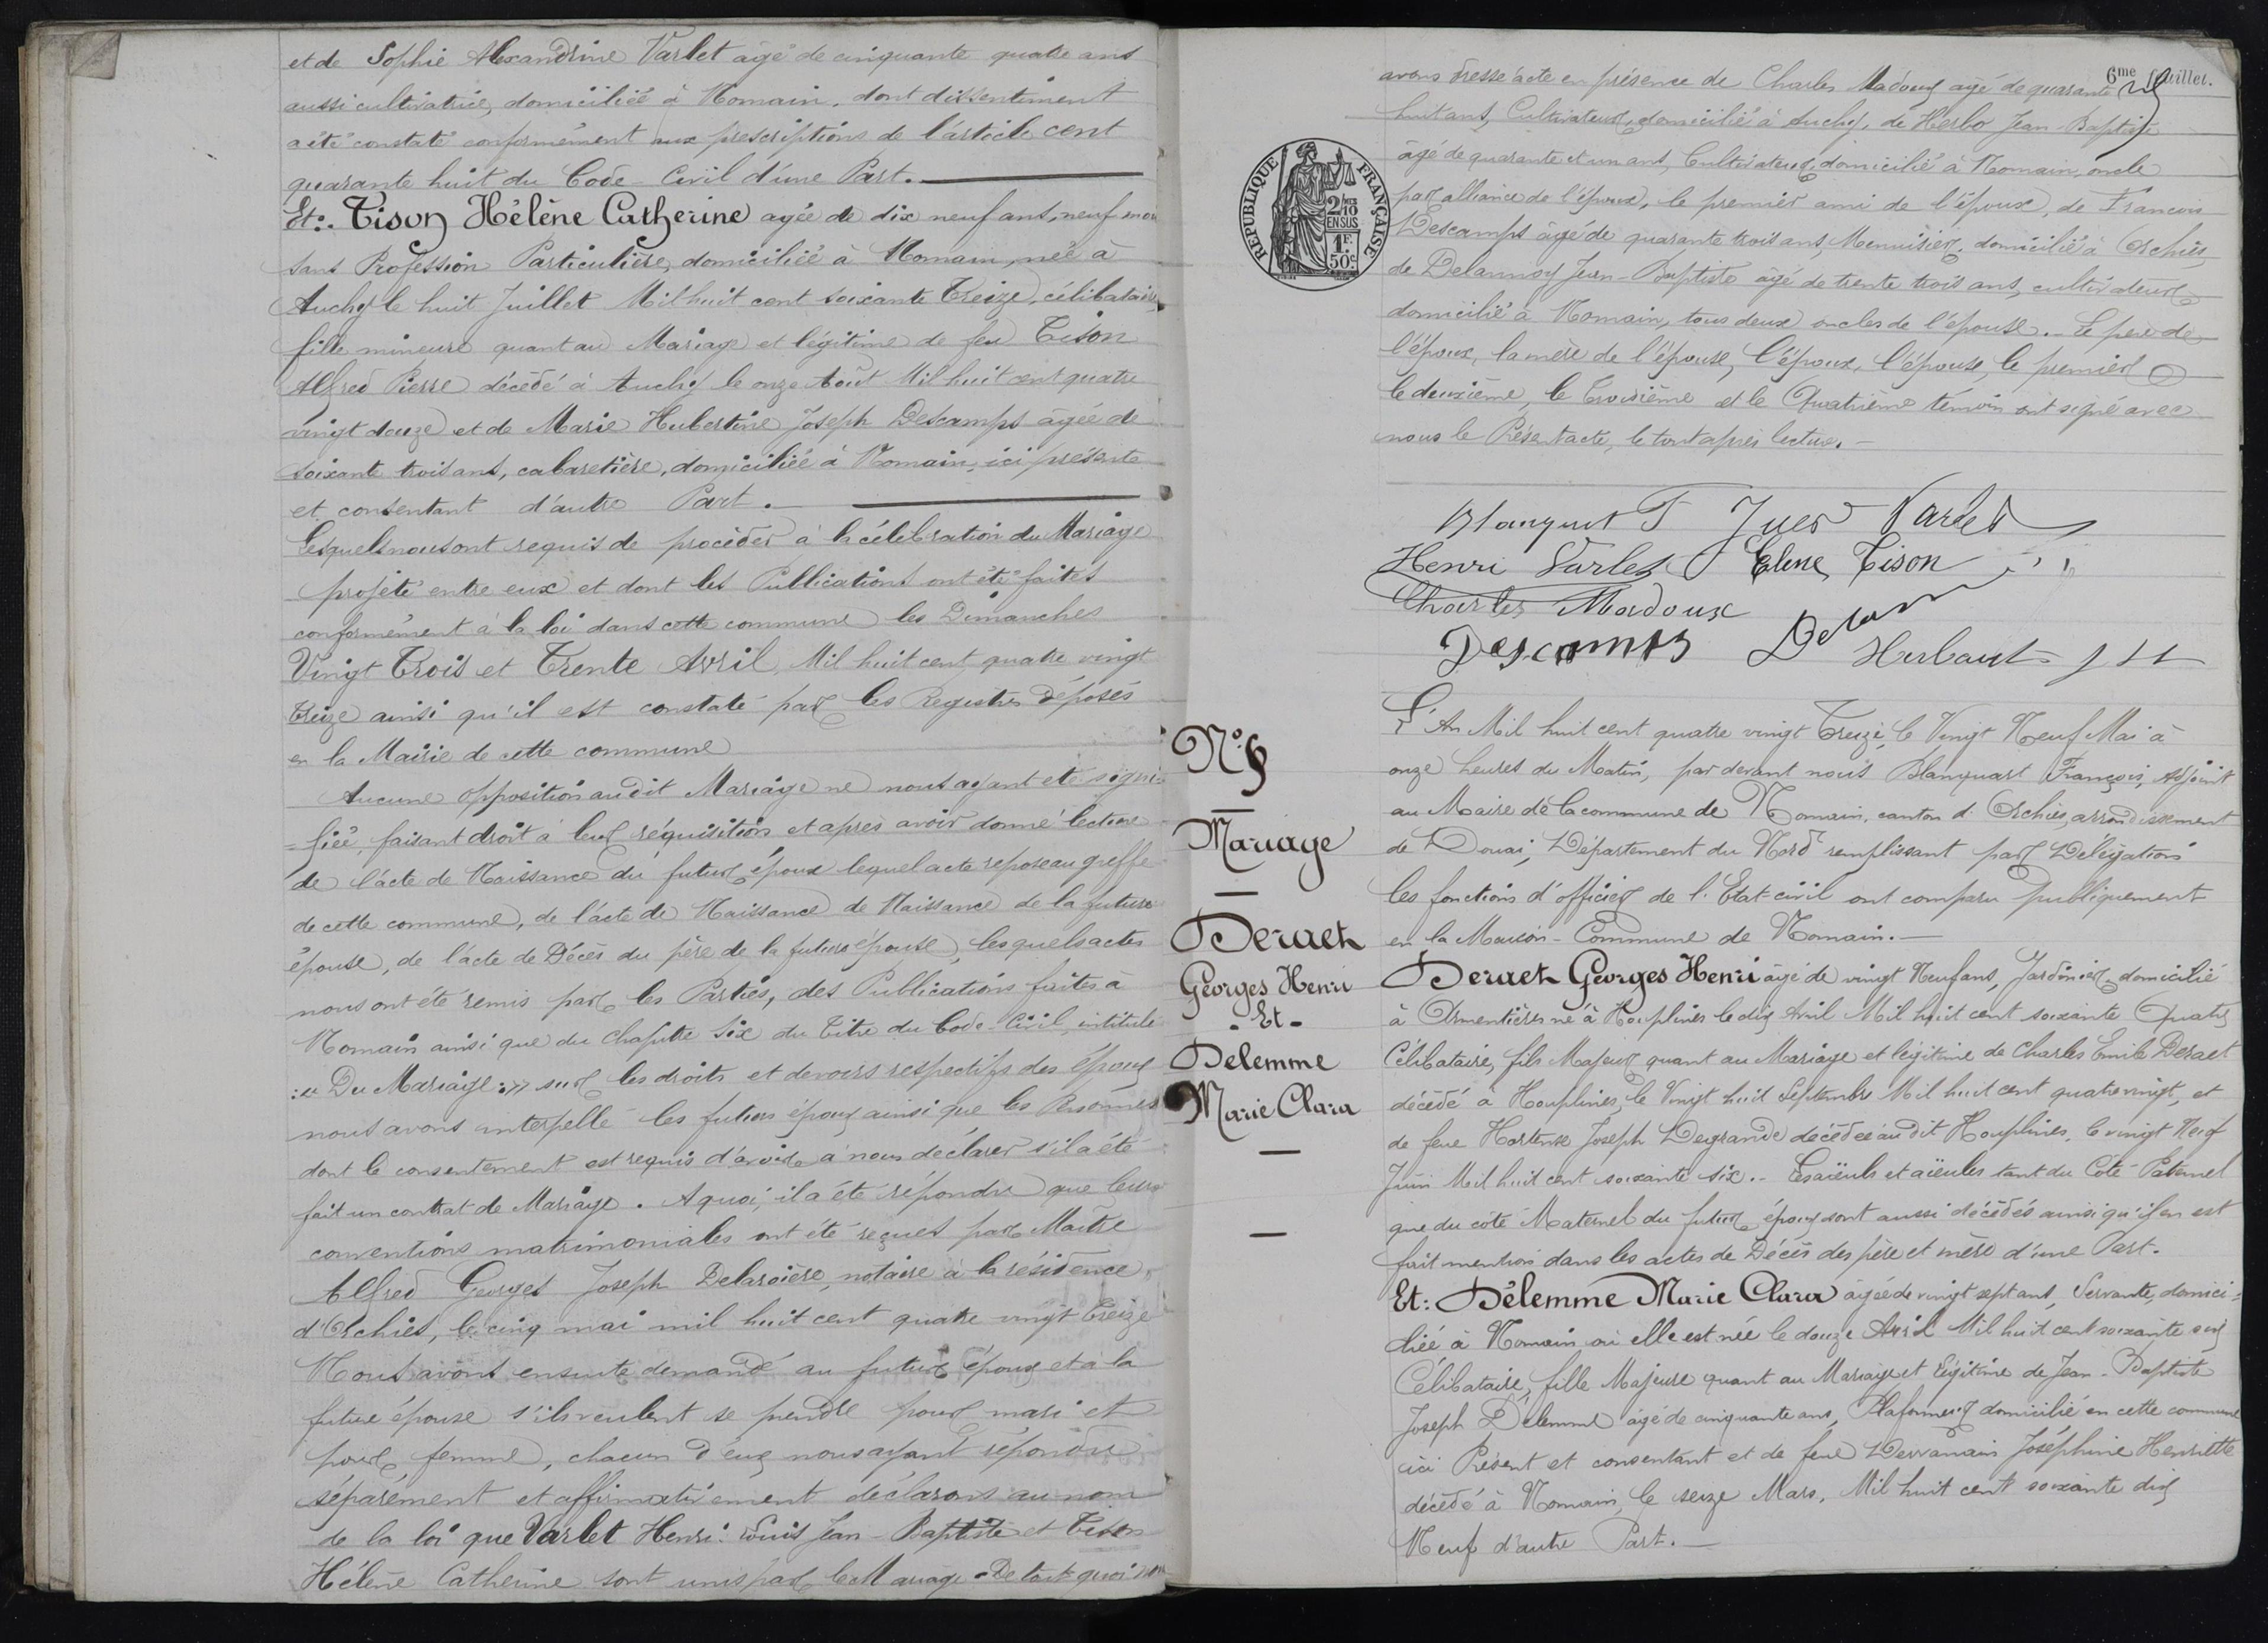 et de Sophie Alexandrine Varlet agé de cinquante quatre ans
aussi cultivatrice, domiciliée à Nomain, dont dissentiment
a été constaté conformément aux prescriptions de l'article cent
quarante huit du Code Civil d'une Part.
Et: Tison Hélène Catherine agée de dix neuf ans, neuf mois
sans Profession Particulière, domiciliée à Nomain, née à
Auchy le huit Juillet Mil huit cent soixante Treize, célibataire,
fille mineure quant au Mariage et légitime de feu Tison
Alfred Pierre décédé à Auchy le onze Août Mil huit cent quatre
vingt douze et de Marie Hubertine Joseph Descamps agée de
soixante trois ans, cabaretière, domiciliée à Nomain, ici présente
et consentant d'autre Part.
Lesquels nous ont requis de procéder à la célébration du Mariage
projeté entre eux et dont les Publications ont été faites
conformément à la loi dans cette commune les Dimanches
Vingt Trois et Trente Avril Mil huit cent quatre vingt
Treize ainsi qu'il est constaté par les Registres déposés
en la Mairie de cette commune
Aucune opposition au dit Mariage ne nous ayant été signi
=fiée, faisant droit à leur réquisition et après avoir donné lecture
de l'acte de Naissance du futur époux lequel acte repose au greffe
de cette commune, de l'acte de Naissance de Naissance de la future
épouse, de l'acte de Décès du père de la future épouse, lesquels actes
nous ont été remis par les Parties, des Publications faites à
Nomain ainsi que du chapitre six du Titre du Code Civil intitulé
:« Du Mariage:» sur les droits et devoirs respectifs des époux
nous avons interpellé les futurs époux ainsi que les Personnes
dont le consentement est requis d'avoir à nous déclarer s'il a été
fait un contrat de Mariage. A quoi, il a été répondu que leurs
conventions matrimoniales ont été reçues par Maître
Alfred Georges Joseph Delaroière, notaire à la résidence
d'Orchies, le cinq mai mil huit cent quatre vingt Treize
Nous avons ensuite demandé au futur époux et à la
future épouse s'ils veulent se prendre pour mari et
pour femme, chacun d'eux nous ayant répondu
séparément et affirmativement déclarons au nom
de la loi que Varlet Henri Louis Jean-Baptiste et Tison
Hélène Catherine sont unis par le Mariage. De tout quoi nous
6me feuillet.
avons dressé acte en présence de Charles Madoux agé de quarante
huit ans, Cultivateur, domicilié à Auchy, de Herbo Jean-Baptiste
âgé de quarante et un ans, Cultivateur, domicilié à Nomain, oncle
par alliance de l'époux, le premier ami de l'époux, de François
Descamps âgé de quarante trois ans, Menuisier, domicilié à Orchies,
de Delannoy Jean-Baptiste âgé de trente trois ans, cultivateur
domicilié à Nomain, tous deux oncles de l'épouse. Le père de
l'époux, la mère de l'épouse, l'époux, l'épouse, le premier
le deuxième, le Troisième et le Quatrième témoin ont signé avec
nous le Présent acte, le tout après lecture.
RÉPUBLIQUE FRANÇAISE
2/10 EN SUS
1F. 50c
Blanquart F Varlet
Henri Varlet Elene Tison
Charles Madoux
Descamps Delann
Herbaut
No 9
Mariage
Deraet
Georges Henri
- Et -
Delemme
Marie Clara
L'An Mil huit cent quatre vingt Treize, le Vingt Neuf Mai à
onze heures du Matin, par devant nous Blanquart François, Adjoint
au Maire de la commune de Nomain, canton d'Orchies, arrondissement
de Douai, Département du Nord remplissant par Délégation
les fonctions d'officier de l'Etat-civil ont comparu publiquement
en la Maison-Commune de Nomain.
Deraet Georges Henri âgé de vingt Neuf ans, Jardinier, domicilié
à Armentières né à Houplines le dix Avril Mil huit cent soixante Quatre
Célibataire, fils Majeur quant au Mariage et légitime de Charles Emile Deraet
décédé à Houplines, le Vingt huit Septembre Mil huit cent quatre vingt, et
de feue Hortense Joseph Degrande décédée au dit Houplines, le vingt Neuf
Juin Mil huit cent soixante six. Les aïeuls et aïeules tant du Côté Paternel
que du côté Maternel du futur époux sont aussi décédés ainsi qu'il en est
fait mention dans les actes de Décès des père et mère d'une Part.
Et: Délemme Marie Clara âgée de vingt sept ans, Servante, domici=
liée à Nomain où elle est née le douze Avril Mil huit cent soixante six
Célibataire, fille Majeure quant au Mariage et légitime de Jean-Baptiste
Joseph Délemme âgé de cinquante ans, Plafonneur domicilié en cette commune
ici Présent et consentant et de feue Joséphine Henriette
décédé à Nomain, le seize Mars, Mil huit cent soixante dix
Neuf d'autre Part.